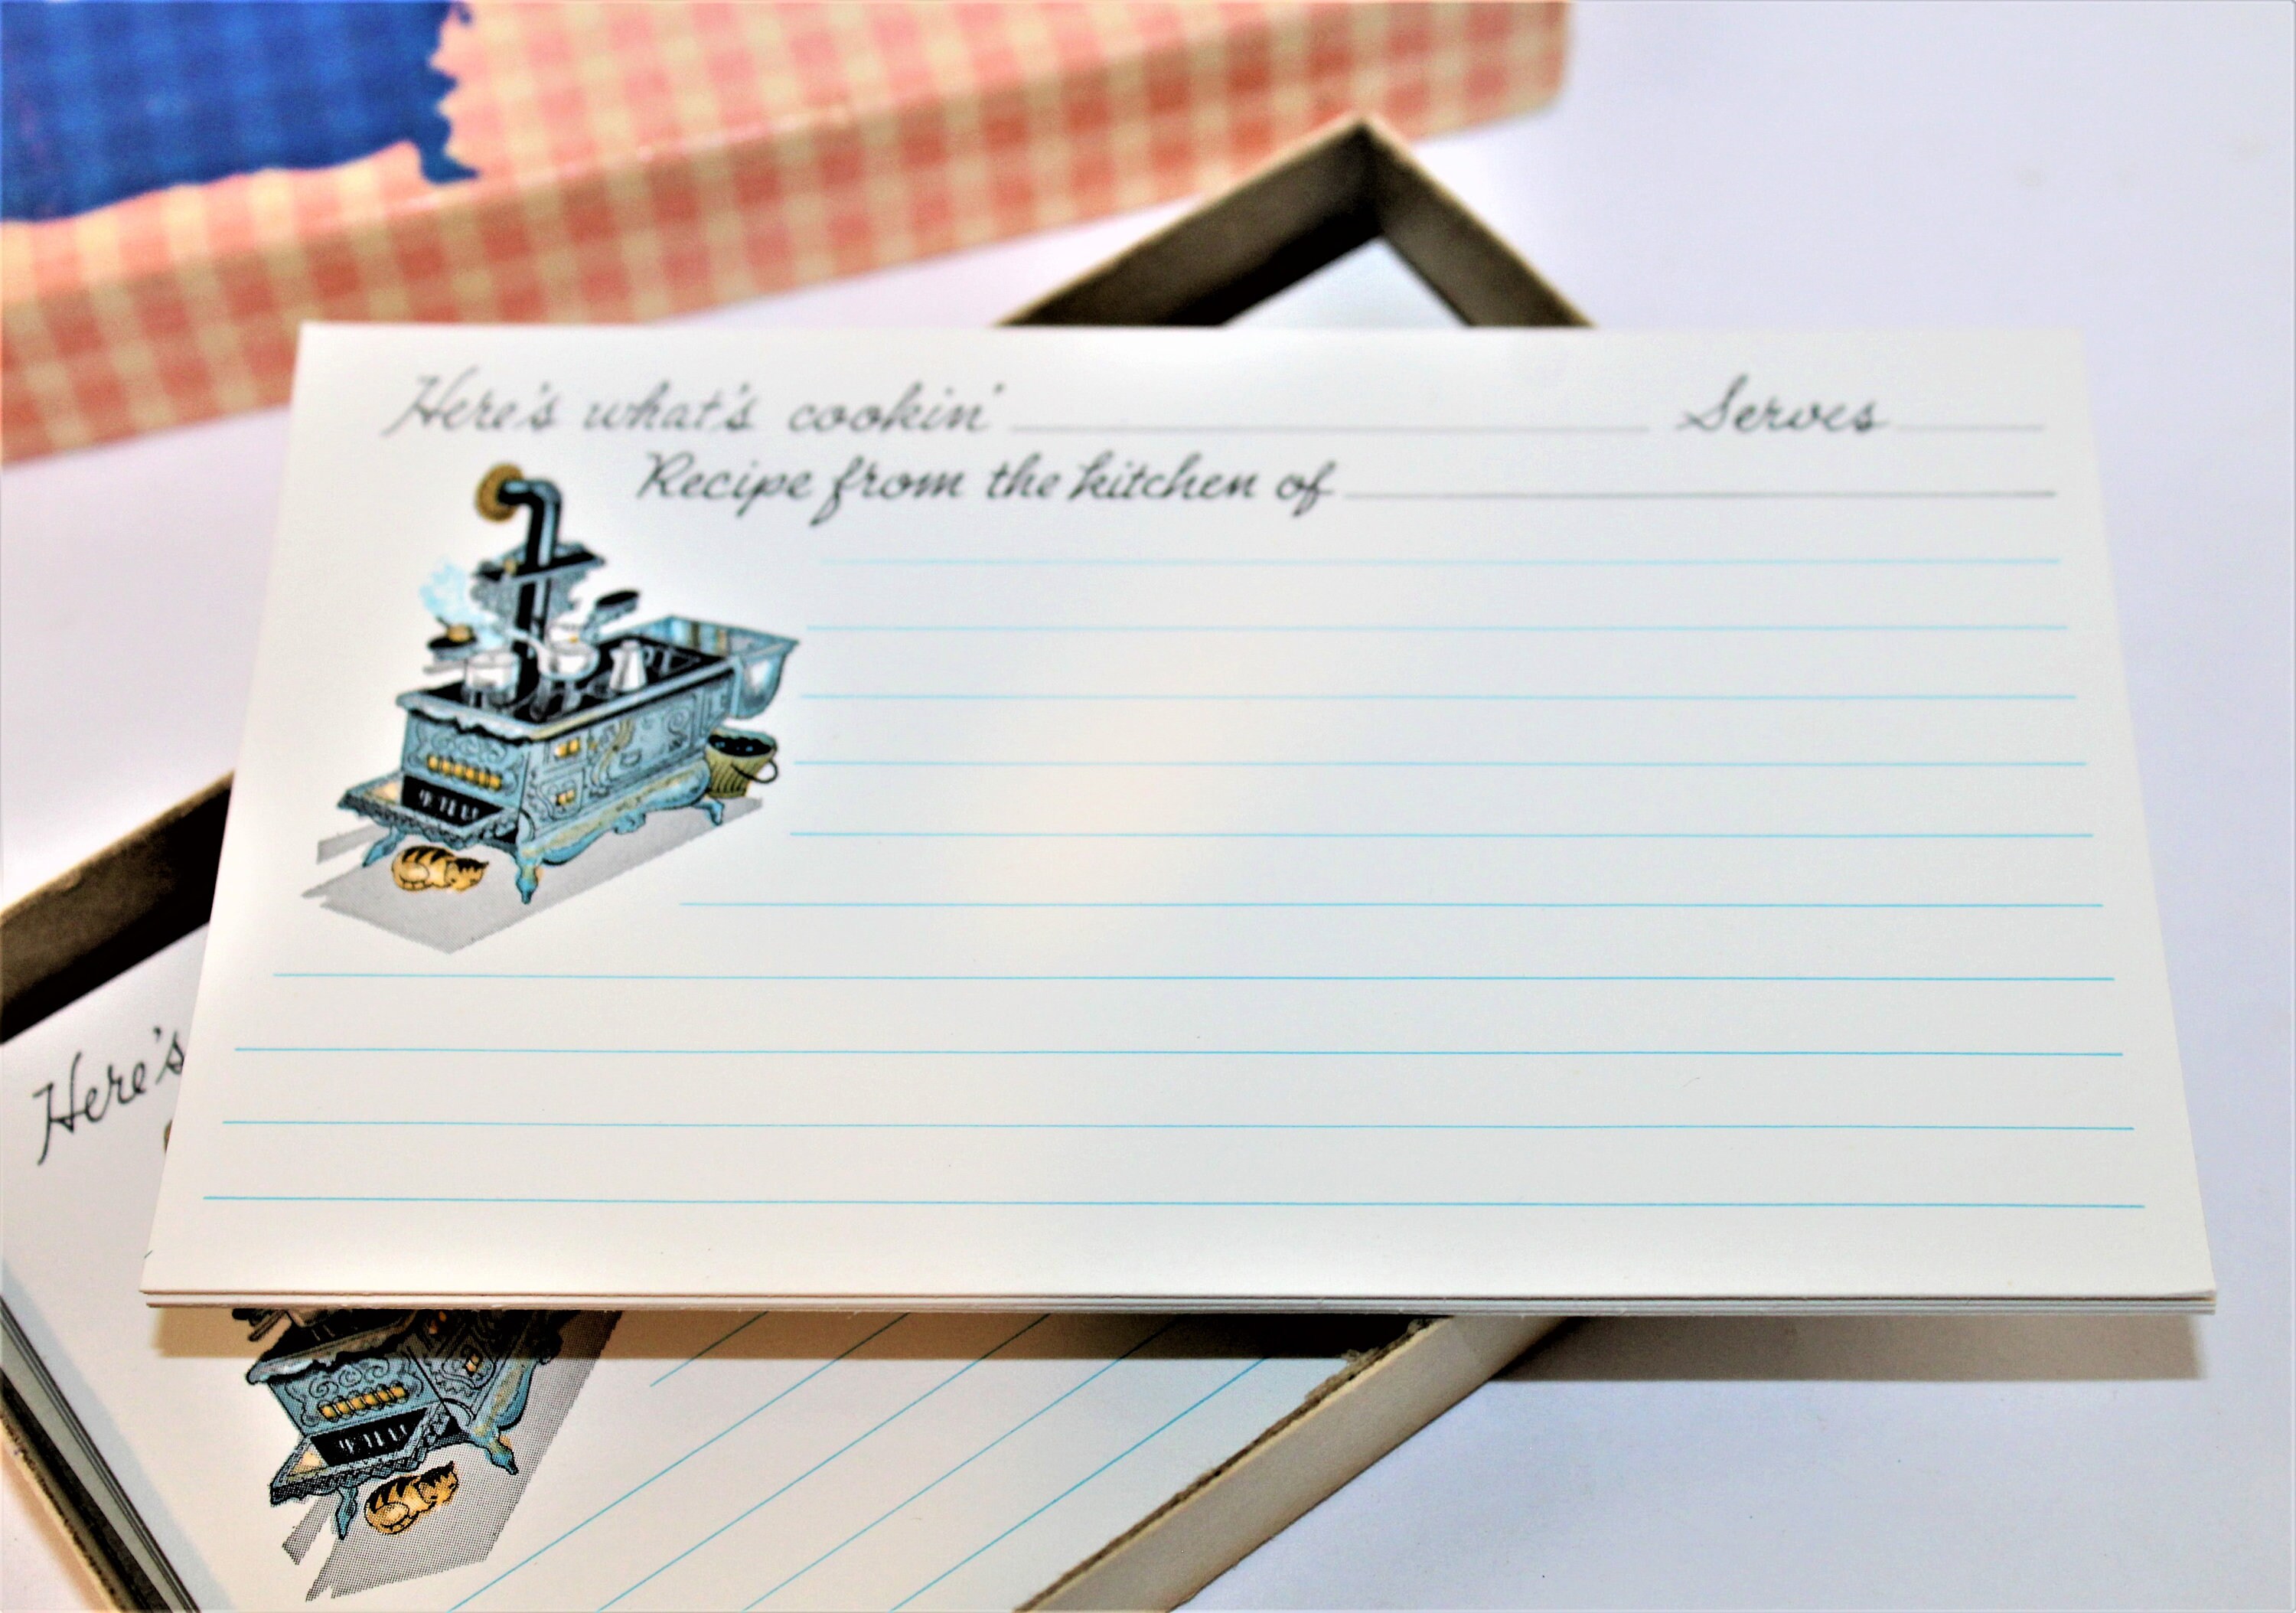 Here's what's cookin' Serves
Recipe from the kitchen of
Here's